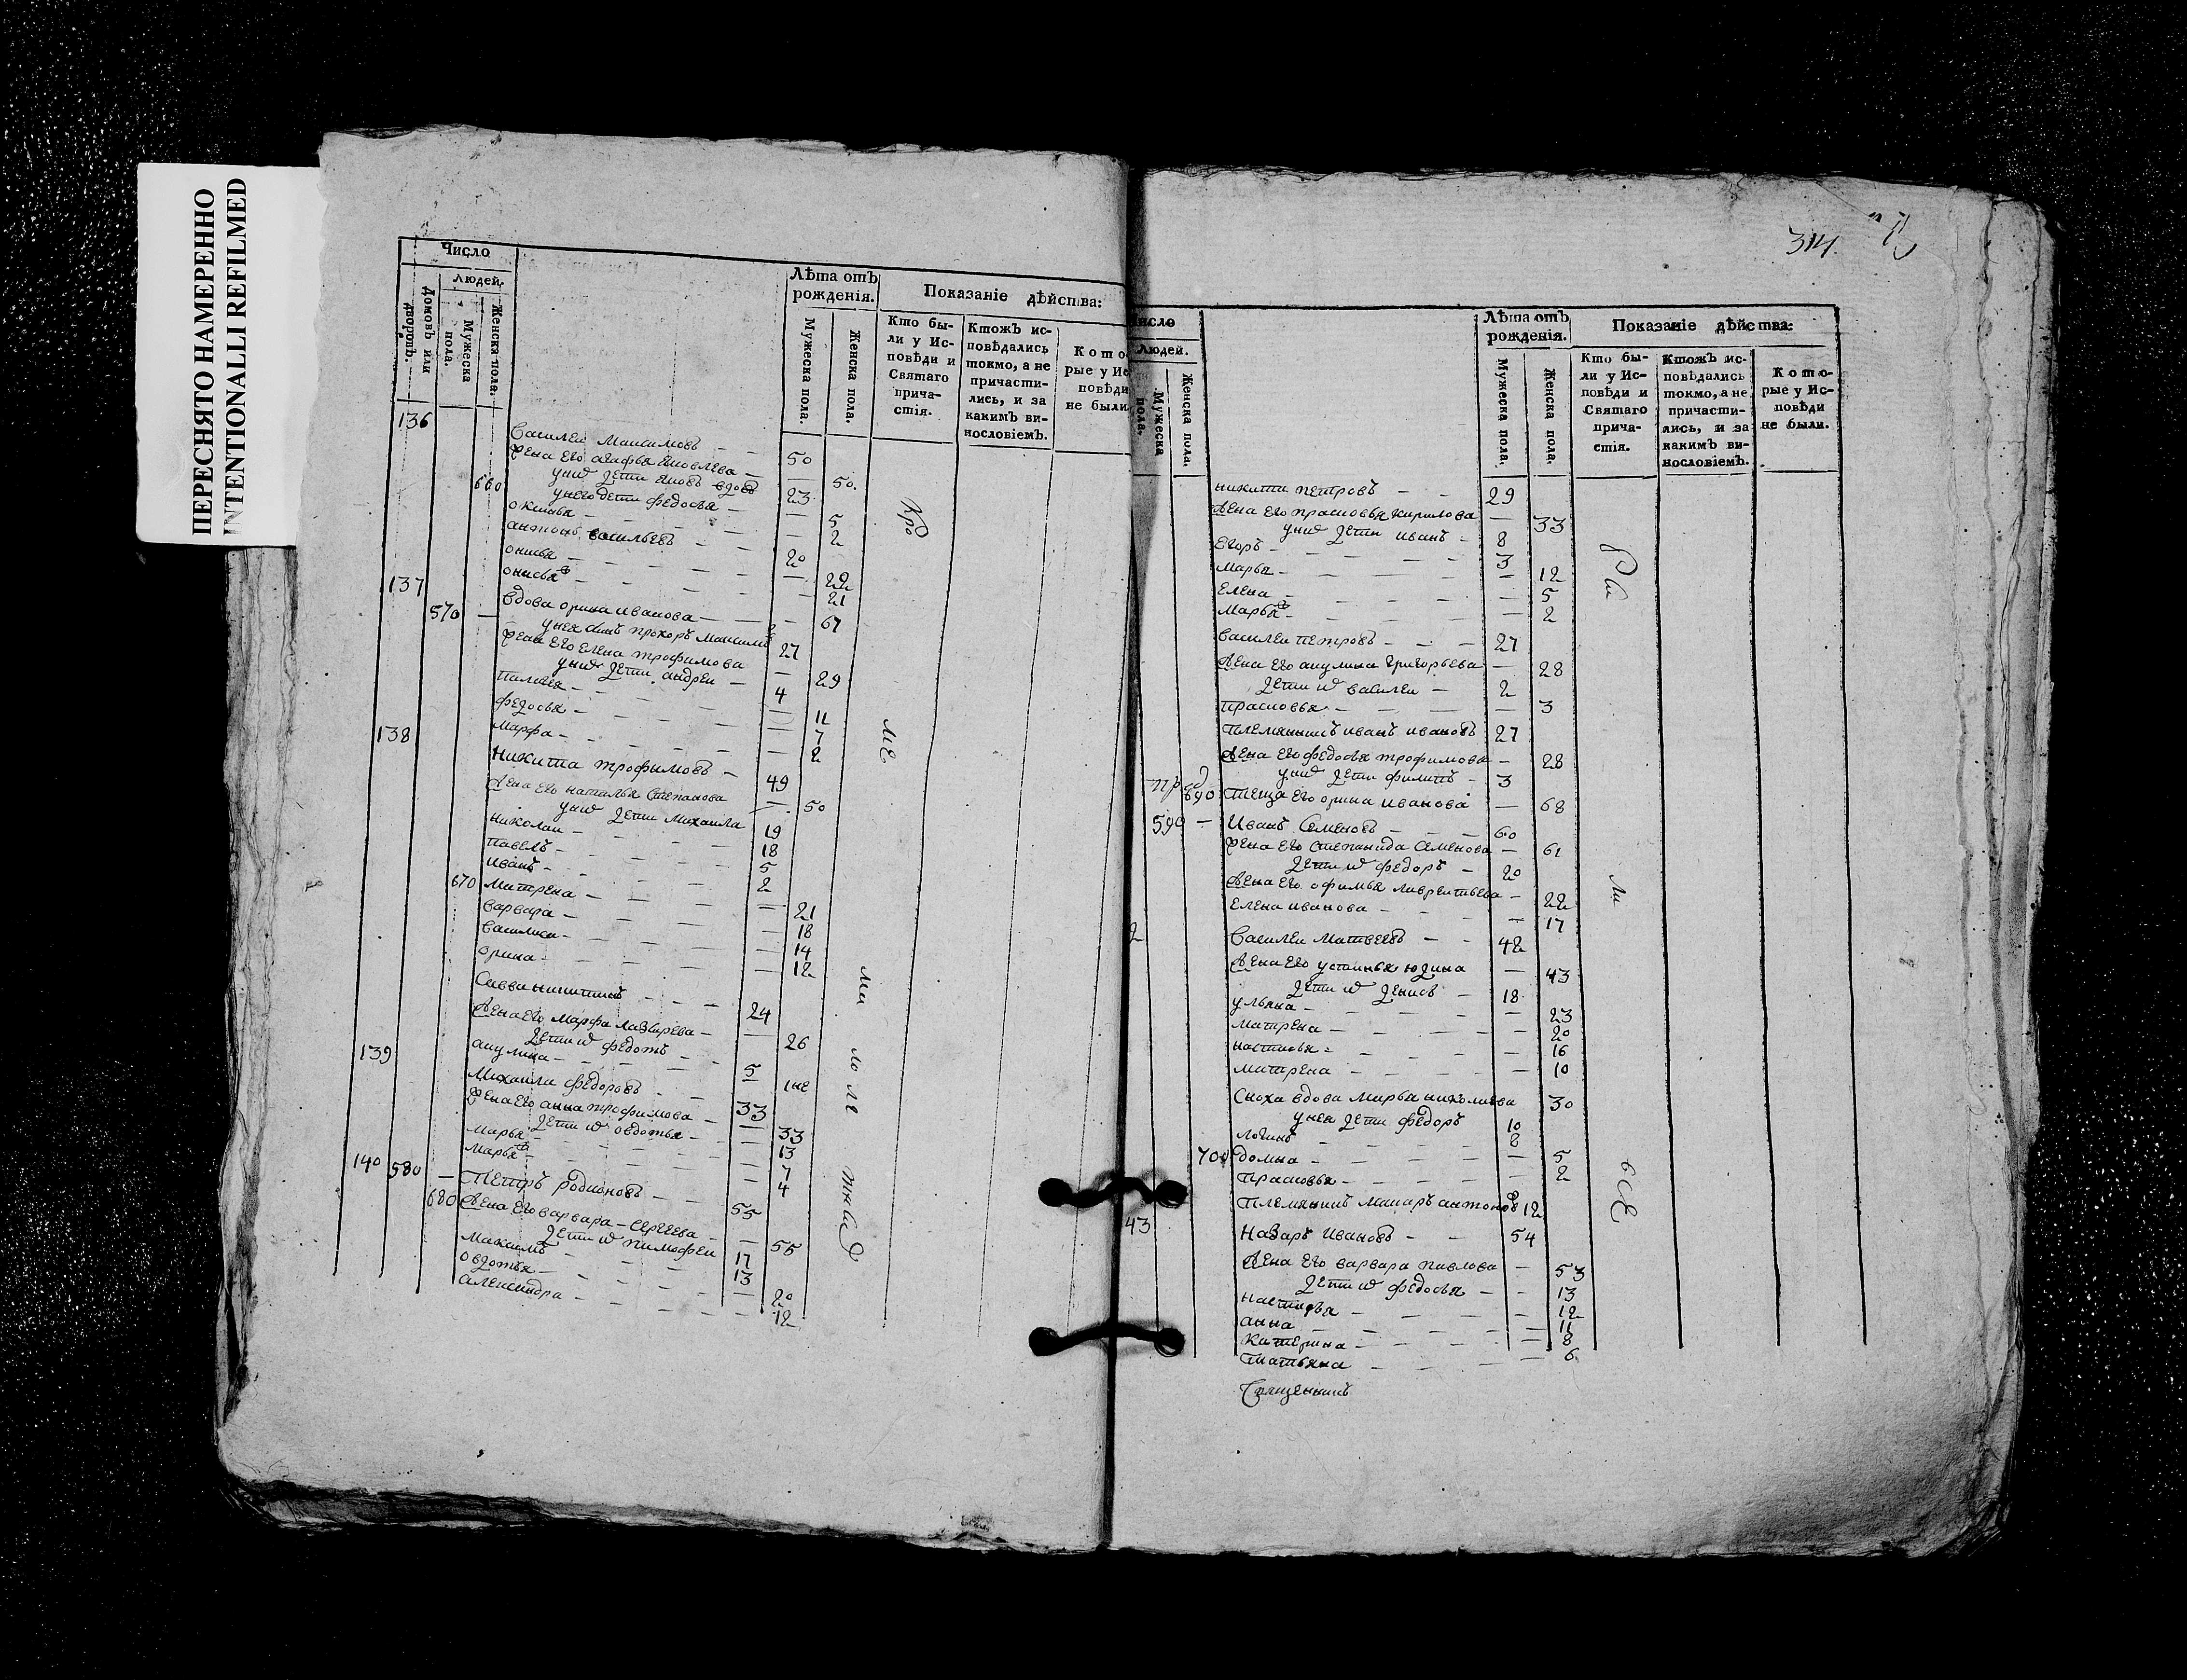 ПЕРЕСНЯТО НАМЕРЕННО
INTENTIONALLI REFILMED
Число
Людей.
Домовъ или дворовъ.
Мужеска пола.
Женска пола.
Лѣта отъ рожденія.
Мужеска пола.
Женска пола.
Показаніе дѣйства:
Кто были у Исповѣди и Святаго причастія.
Ктожъ исповѣдались токмо, а не причастились, и за какимъ винословіемъ.
Которые у Исповѣди не были
136
Василеи Максимовъ — 50
Жена его агафья яковлева — 50
у них дети яковъ вдовъ 23
660 у него дети федосья — 5
оксинья — 2
антонъ васильевъ — 20
онисья — 22
онисья — 21
137
вдова орина иванова — 67
570 — у нея сынъ прохоръ Максимовъ 27
Жена его елена трофимова — 29
у них дети андреи — 4
пилагея — 11
федосья — 7
марфа — 2
138
Никита трофимовъ — 49
Жена его наталья степанова — 50
у них дети михаила 19
николаи — 18
павелъ — 5
иванъ — 2
670 матрена — 21
варвара — 18
василиса — 14
орина — 12
Савва никитинъ — 24
Жена его марфа лазарева — 26
дети их федотъ — 5
акулина — 1 не
139
Михаила федоровъ — 33
Жена его анна трофимова — 33
дети их овдотья — 13
марья — 7
марья — 4
140 580 — Петръ родионовъ — 55
680 Жена его варвара сергеева — 55
дети их тимофеи 17
максимъ — 13
овдотья — 20
александра — 12
Кро
ме
ма
ло ле
тнвхъ
314.
Число
Людей.
Мужеска пола.
Женска пола.
Лѣта отъ рожденія.
Мужеска пола.
Женска пола.
Показаніе дѣйства:
Кто были у Исповѣди и Святаго причастія.
Ктожъ исповѣдались токмо, а не причастились, и за какимъ винословіемъ.
Которые у Исповѣди не были.
никита петровъ — 29
Жена его прасковья кирилова — 33
у них дети иванъ — 8
егоръ — 3
марья — 12
елена — 5
марья — 2
василеи петровъ — 27
Жена его акулина григорьева — 28
дети их василеи — 2
прасковья — 3
племянникъ иванъ ивановъ 27
Жена его федосья трофимова — 28
у них дети филипъ — 3
690 теща его орина иванова — 68
590 — Иванъ Семеновъ — 60
Жена его степанида семенова — 61
дети их федоръ — 20
Жена его офимья лаврентьева — 22
елена иванова — 17
2 Василеи Матвеевъ — 42
Жена его устинья юдина — 43
дети их денисъ — 18
ульяна — 23
матрена — 20
настасья — 16
матрена — 10
сноха вдова марья николаева 30
у нея дети федоръ 10
логинъ — 8
700 домна — 5
прасковья — 2
племянникъ макаръ антоновъ 12
43 Назаръ Ивановъ — 54
Жена его варвара павлова — 53
дети их федосья — 13
настасья — 12
анна — 11
катерина — 8
татьяна — 6
бы
ли
все
Священникъ